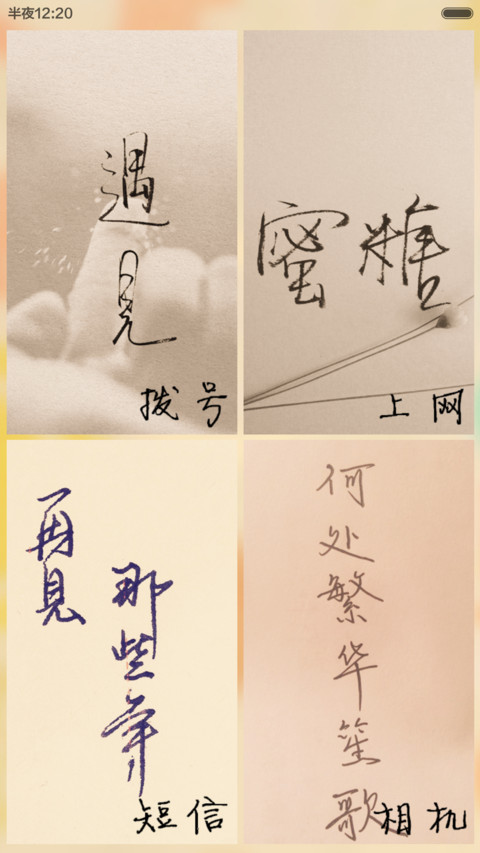 半夜12:20
遇見
拨号
蜜糖
上网
再見
那些年
短信
何处繁华笙歌
相机